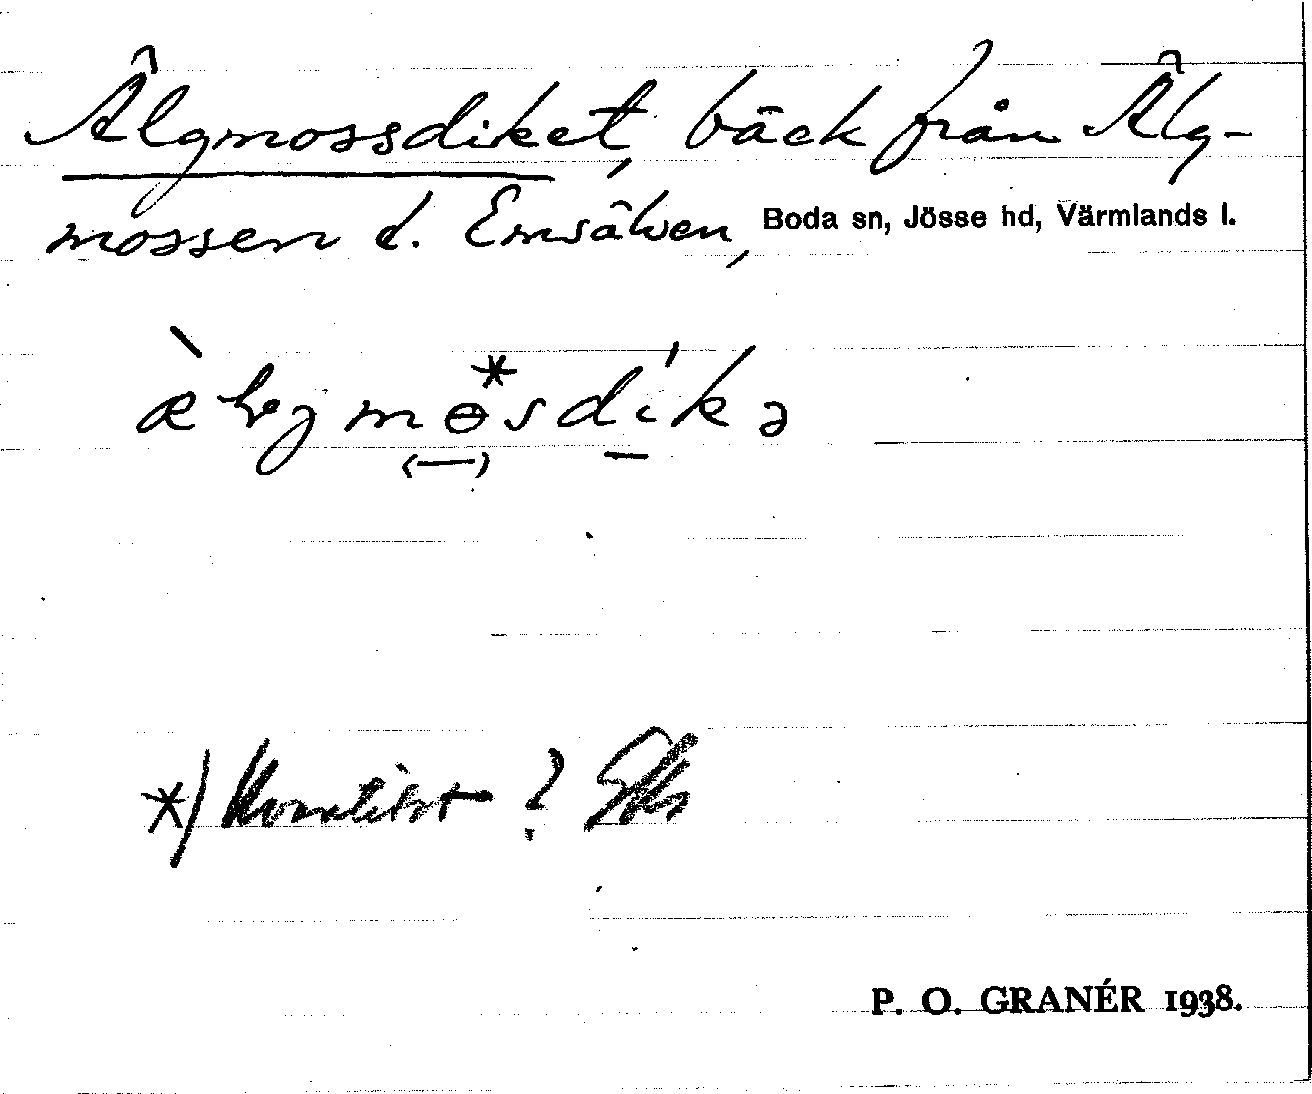 Älgmossdiket, bäck från Älg-
mossen t. Emsälven, Boda sn, Jösse hd, Värmlands l.
*) Kvantitet?
P. O. GRANÉR 1938.